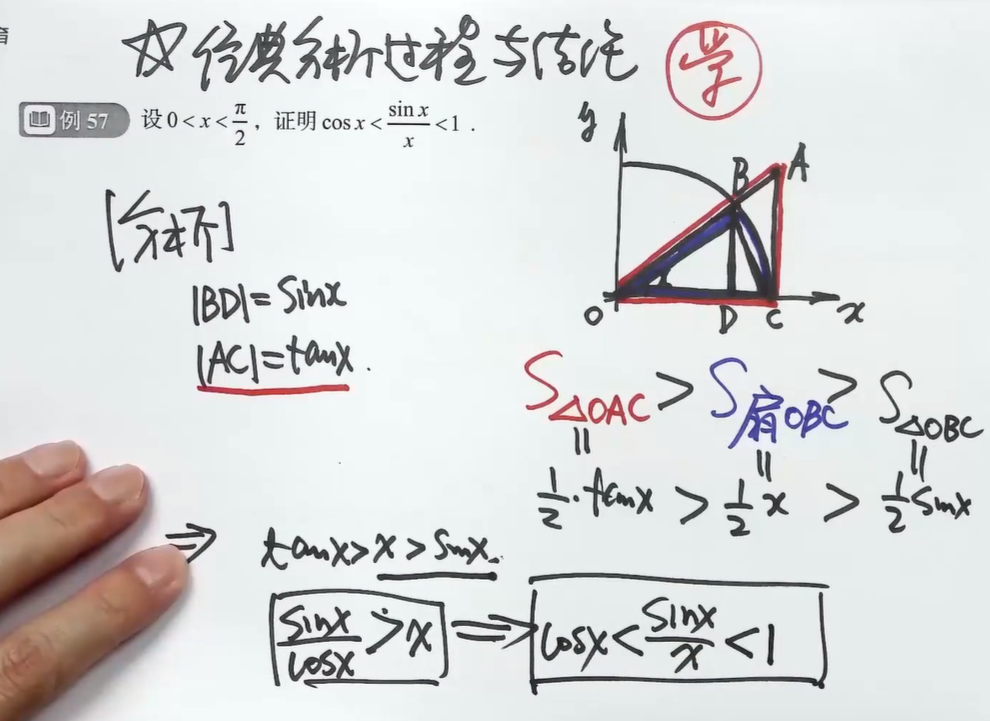 育
☆经典分析过程与结论
学
例 57 设 0 < x < π/2 ,证明 cos x < sin x / x < 1 .
y
B
A
O
D
C
x
[分析]
|BD|= sinx
|AC|=tanx.
S△OAC > S扇OBC > S△OBC
= = =
1/2·tanx > 1/2 x > 1/2 sinx
⇒ tanx>x>sinx.
sinx/cosx > x ⇒ cosx < sinx/x < 1